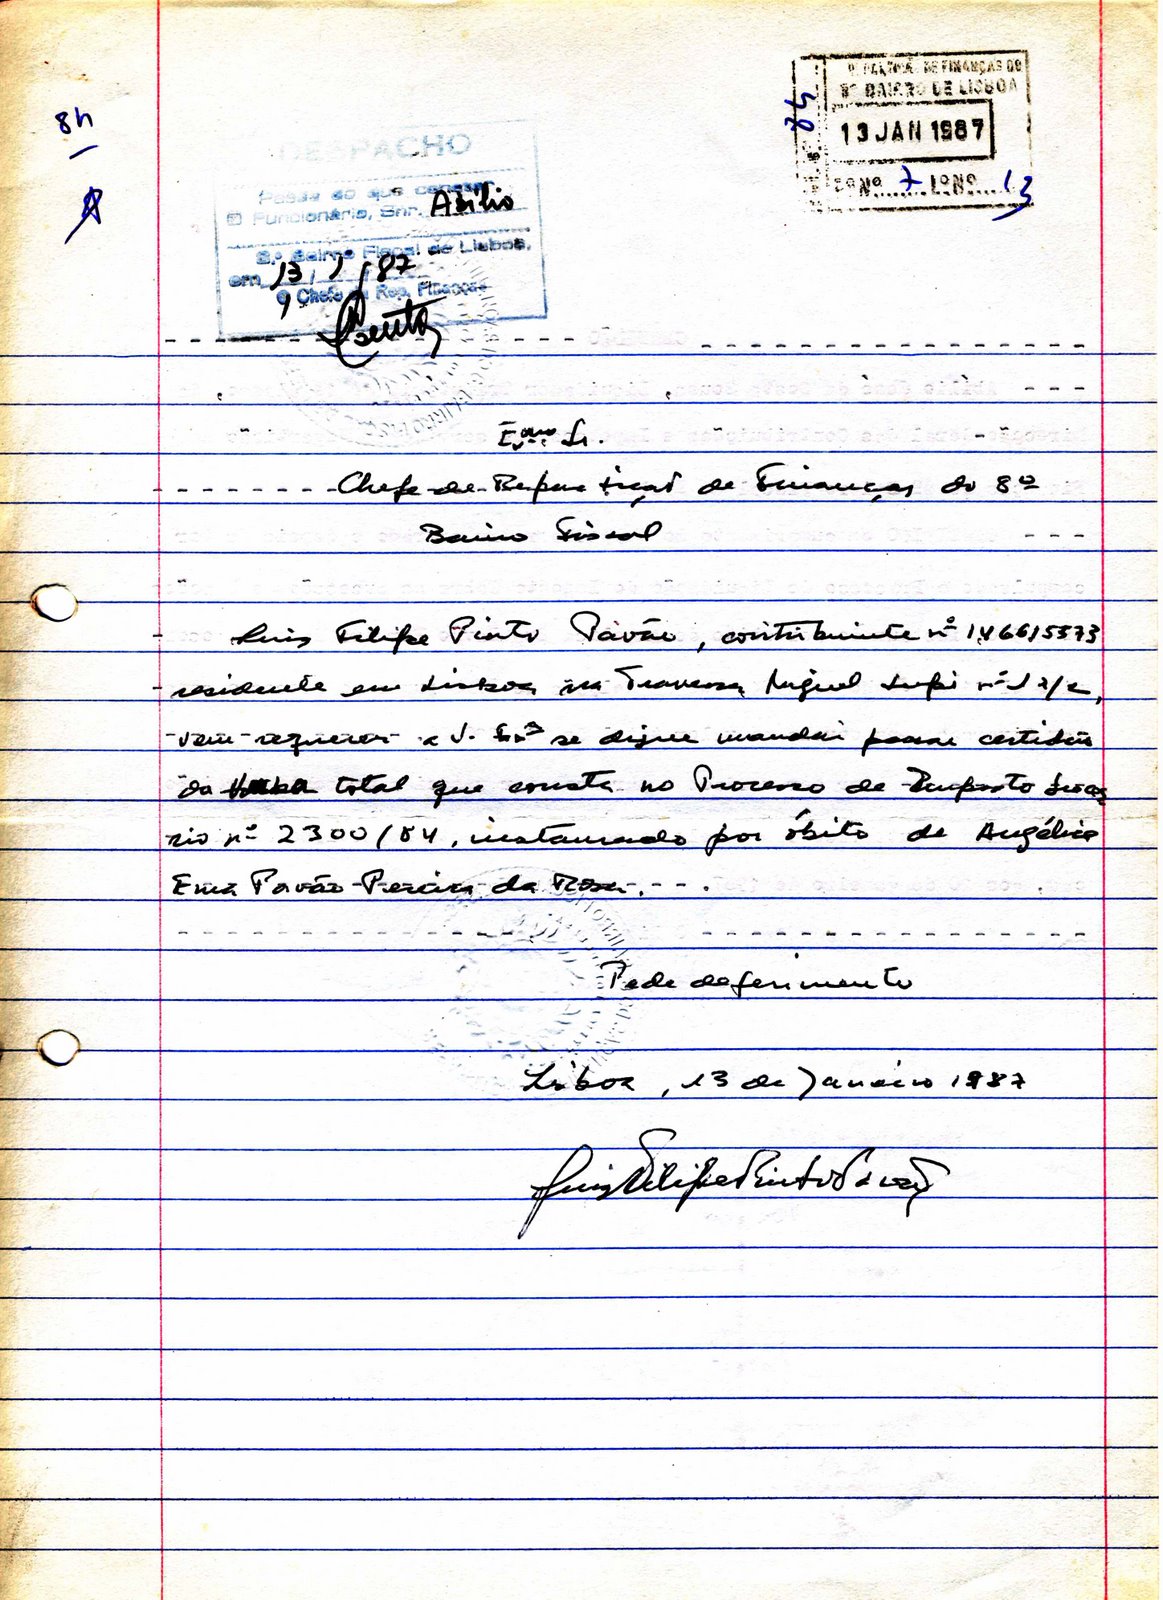 84
84
REPARTIÇÃO DE FINANÇAS DO
8º BAIRRO DE LISBOA
13 JAN 1987
Nº 7 Lº Nº 13
DESPACHO
Passe do que constar
O Funcionário, Snr. Abílio
8.º Bairro Fiscal de Lisboa,
em 13/1/87
O Chefe da Rep. Finanças
Exmo Sr.
Chefe de Repartição de Finanças do 8º
Bairro Fiscal
Luis Filipe Pinto Pavão, contribuinte nº 146615373
residente em Lisboa na Travessa Miguel Lupi nº 17/2,
vem requerer a V. Exª se digne mandar passar certidão
da total que consta no Processo de Imposto Suces
rio nº 2300/84, instaurado por óbito de Angélica
Ema Pavão Pereira da Rosa.
Pede deferimento
Lisboa, 13 de Janeiro 1987
Luis Filipe Pinto Pavão